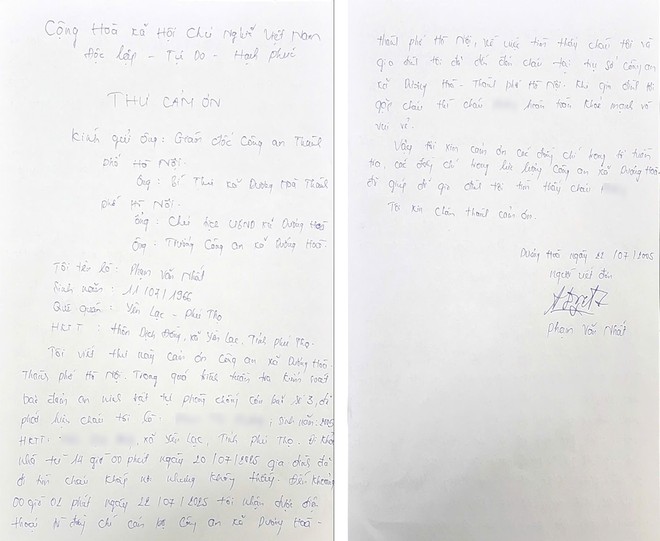 Cộng Hoà Xã Hội Chủ Nghĩa Việt Nam
Độc lập - Tự Do - Hạnh phúc
THƯ CẢM ƠN
Kính gửi ông: Giám đốc Công an Thành
Phố Hà Nội.
Ông: Bí Thư xã Dương Hoà Thành
Phố Hà Nội.
Ông: Chủ tịch UBND xã Dương Hoà
Ông: Trưởng Công an xã Dương Hoà.
Tôi tên là: Phạm Văn Nhất
Sinh năm: 11/07/1966
Quê quán: Yên Lạc - Phú Thọ
HKTT: thôn Dịch Đồng, xã Yên Lạc, Tỉnh phú Thọ.
Tôi viết thư này cảm ơn Công an xã Dương Hoà
Thành phố Hà Nội. Trong quá trình tuần tra kiểm soát
bảo đảm an ninh trật tự phòng chống cơn bão số 3, đã
phát hiện cháu tôi là: ; Sinh năm:
HKTT: , xã Yên Lạc, Tỉnh phú Thọ. Đi khỏi
nhà từ 14 giờ 00 phút ngày 20/07/2025 gia đình đã
đi tìm cháu khắp nơi nhưng không thấy. Đến khoảng
00 giờ 02 phút ngày 22/07/2025 tôi nhận được điện
thoại từ đồng chí cán bộ Công an xã Dương Hoà -
thành phố Hà Nội, về việc tìm thấy cháu tôi và
gia đình tôi đã đến đón cháu tại trụ sở Công an
xã Dương Hoà - Thành phố Hà Nội. Khi gia đình tôi
gặp cháu thì cháu hoàn toàn khoẻ mạnh và
vui vẻ.
Vậy tôi xin cảm ơn các đồng chí trong tổ tuần
tra, các đồng chí trong lực lượng Công an xã Dương Hoà
đã giúp đỡ gia đình tôi tìm thấy cháu
Tôi xin chân thành cảm ơn.
Dương Hoà ngày 22/07/2025
Người viết đơn
Phạm Văn Nhất